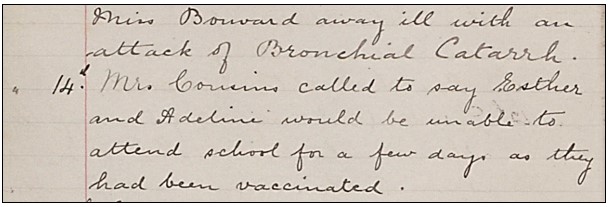 Miss Bouvard away ill with an
attack of Bronchial Catarrh.
" 14. Mrs Cousins called to say Esther
and Adeline would be unable to
attend school for a few days as they
had been vaccinated.